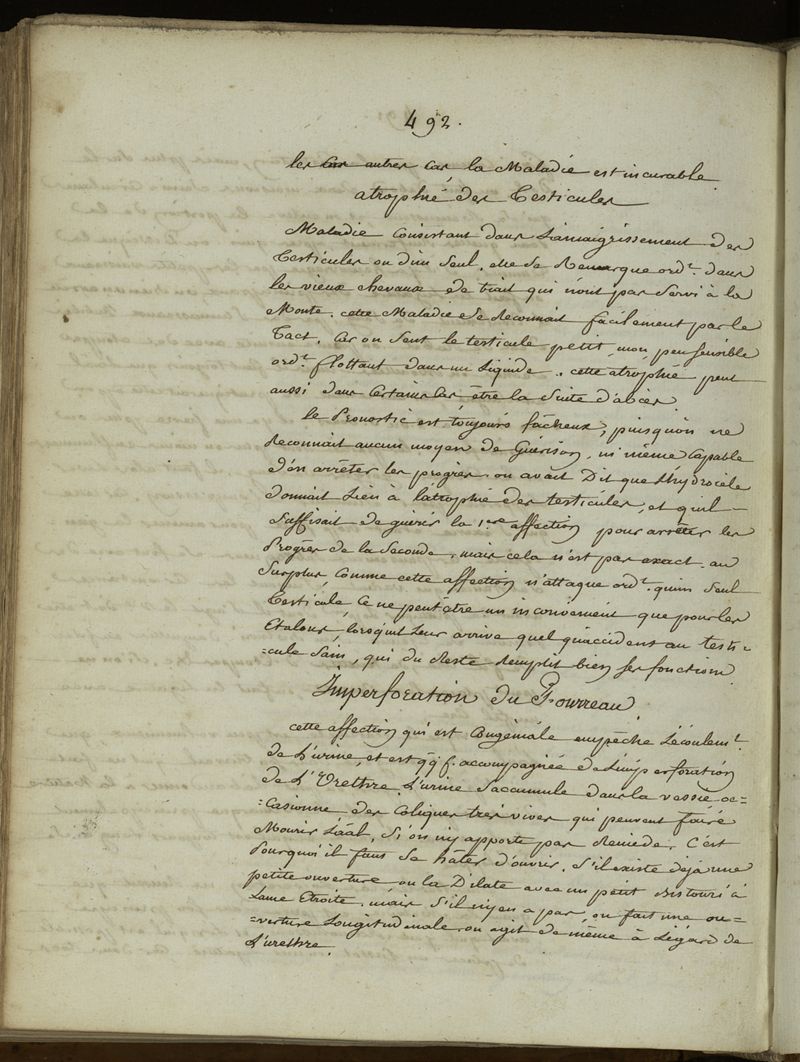 492.
les cas autres cas, la Maladie est incurable
atrophié des Testicules
Maladie Consistant dans L'amaigrissement des
Testicules ou d'un Seul, elle se Remarque ord.t dans
les vieux chevaux de trait qui n'ont pas Servi à la
Monte. cette Maladie se Reconnait facilement par le
Tact, Car on Sent le testicule petit, mou, peu sensible
ord.t flottant dans un Liquide. cette atrophié peut
aussi dans Certains Cas être la Suite d'abcès.
le Pronostic est toujours fâcheux, puisqu'on ne
Reconnait aucun moyen de Guérison, ni même Capable
d'en arrêter les progrès. on avait Dit que L'hydrocèle
donnait Lieu à l'atrophie des testicules, et qu'il
Suffisait de guérir la 1.ere affection pour arrêter les
Progrès de la Seconde, mais cela n'est pas exact. au
Surplus, Comme cette affection n'attaque ord.t qu'un Seul
Testicule, Ce ne peut être un inconvénient que pour les
Etalons, lorsqu'il Leur arrive quelqu'accident au testi=
=cule Sain, qui du Reste Remplit bien ses fonctions
Imperforation du Fourreau
cette affection qui est Congéniale empêche L'écoulem.t
de L'urine, et est qq f. accompagnée de L'imperforation
de L'Urethre. L'urine S'accumule dans la vessie oc=
=casionne des Coliques très vives qui peuvent faire
Mourir L'aal, Si on n'y apporte pas Remède. C'est
Pourquoi il faut Se hâter d'ouvrir. S'il existe déjà une
petite ouverture on la Dilate avec un petit Bistouri à
Lame Etroite, mais S'il n'y en a pas, on fait une ou=
=verture Longitudinale on agit de même à L'égard de
L'urethre.